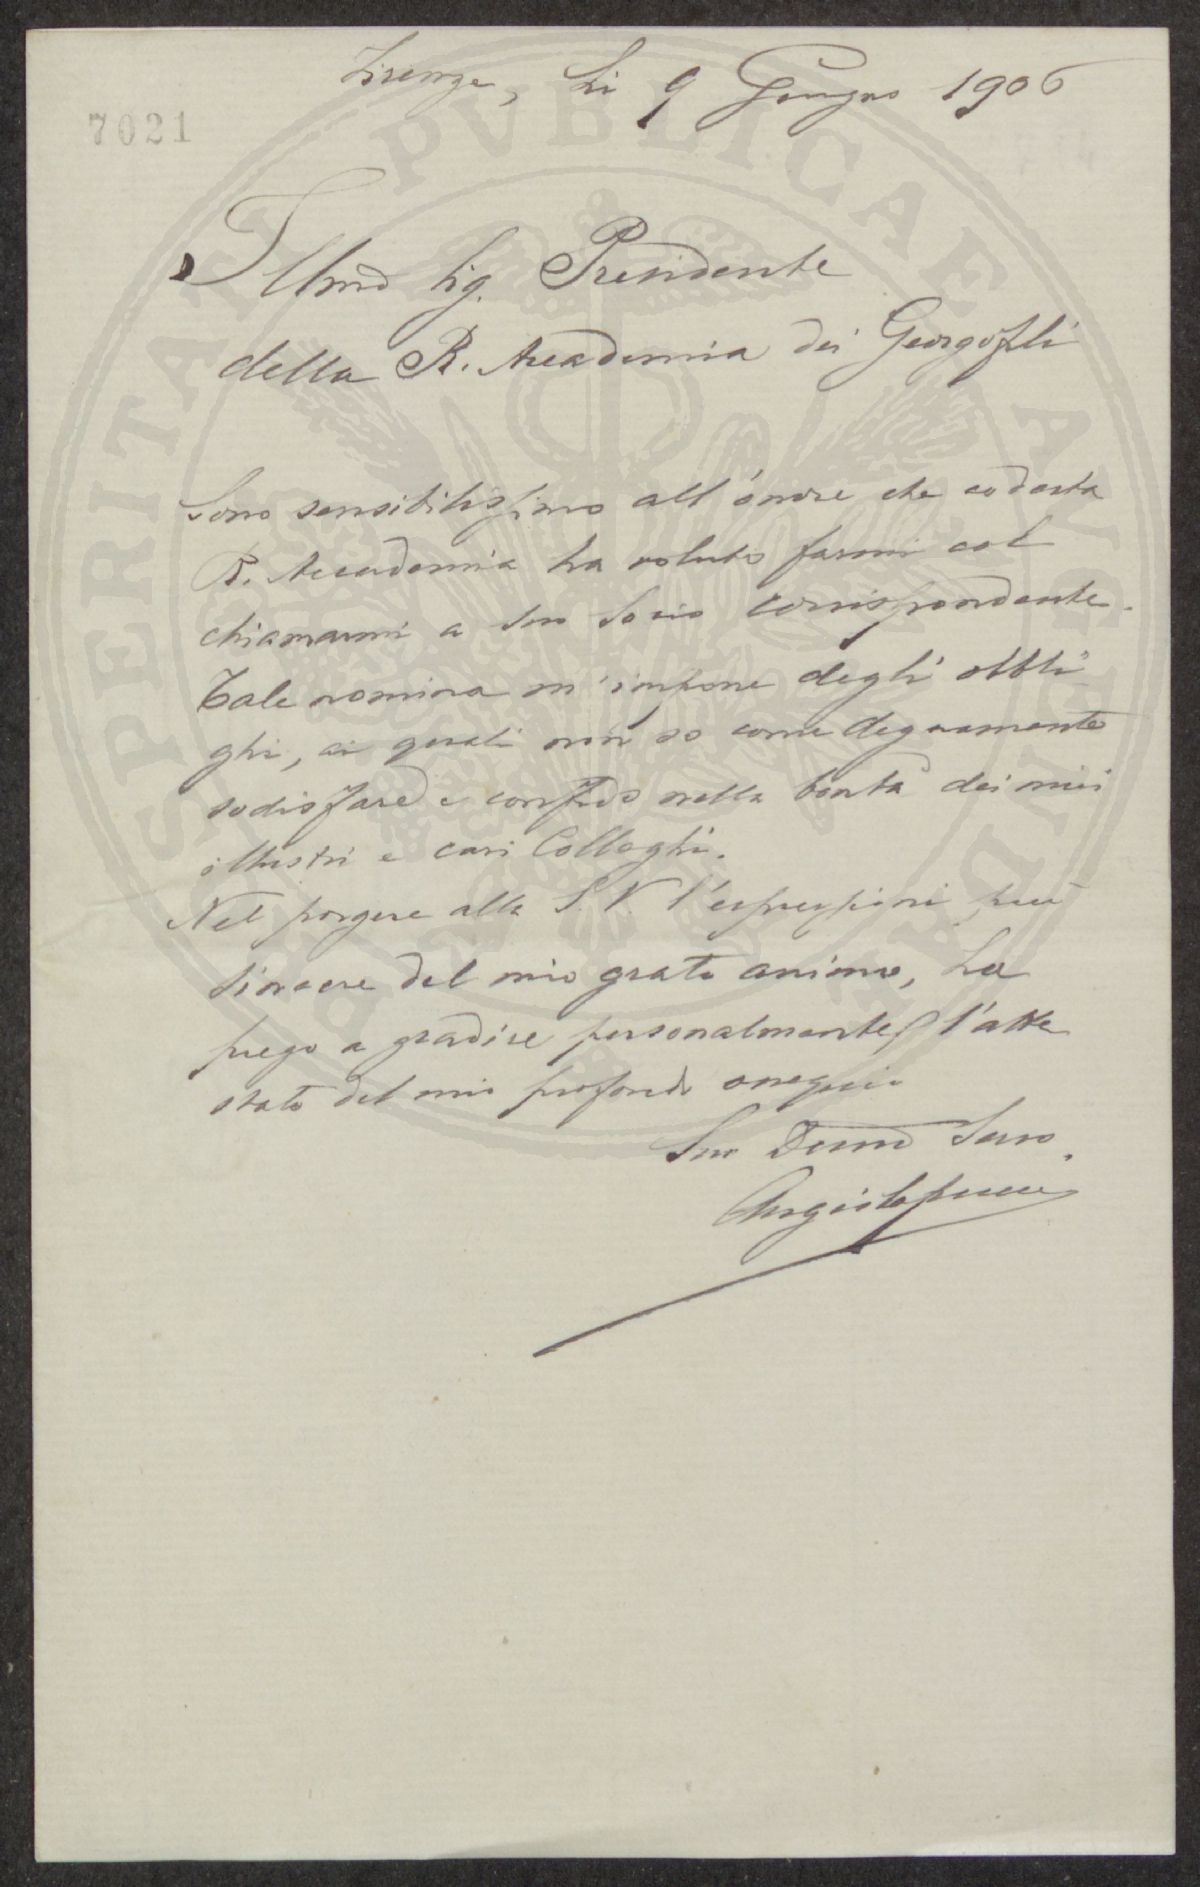 7021
Firenze, li 9 Giugno 1906
Illmo Sig. Presidente
della R. Accademia dei Georgofili
Sono sensibilissimo all'onore che codesta
R. Accademia ha voluto farmi col
chiamarmi a suo Socio corrispondente.
Tale nomina m'impone degli obbli
ghi, ai quali non so come degnamente
sodisfare e confido nella bontà dei miei
illustri e cari Colleghi.
Nel porgere alla S.V. l'espressioni più
sincere del mio grato animo, La
prego a gradire personalmente l'atte
stato del mio profondo ossequio
Suo Devmo Servo
PROSPERITATI PVBLICAE AVGENDAE